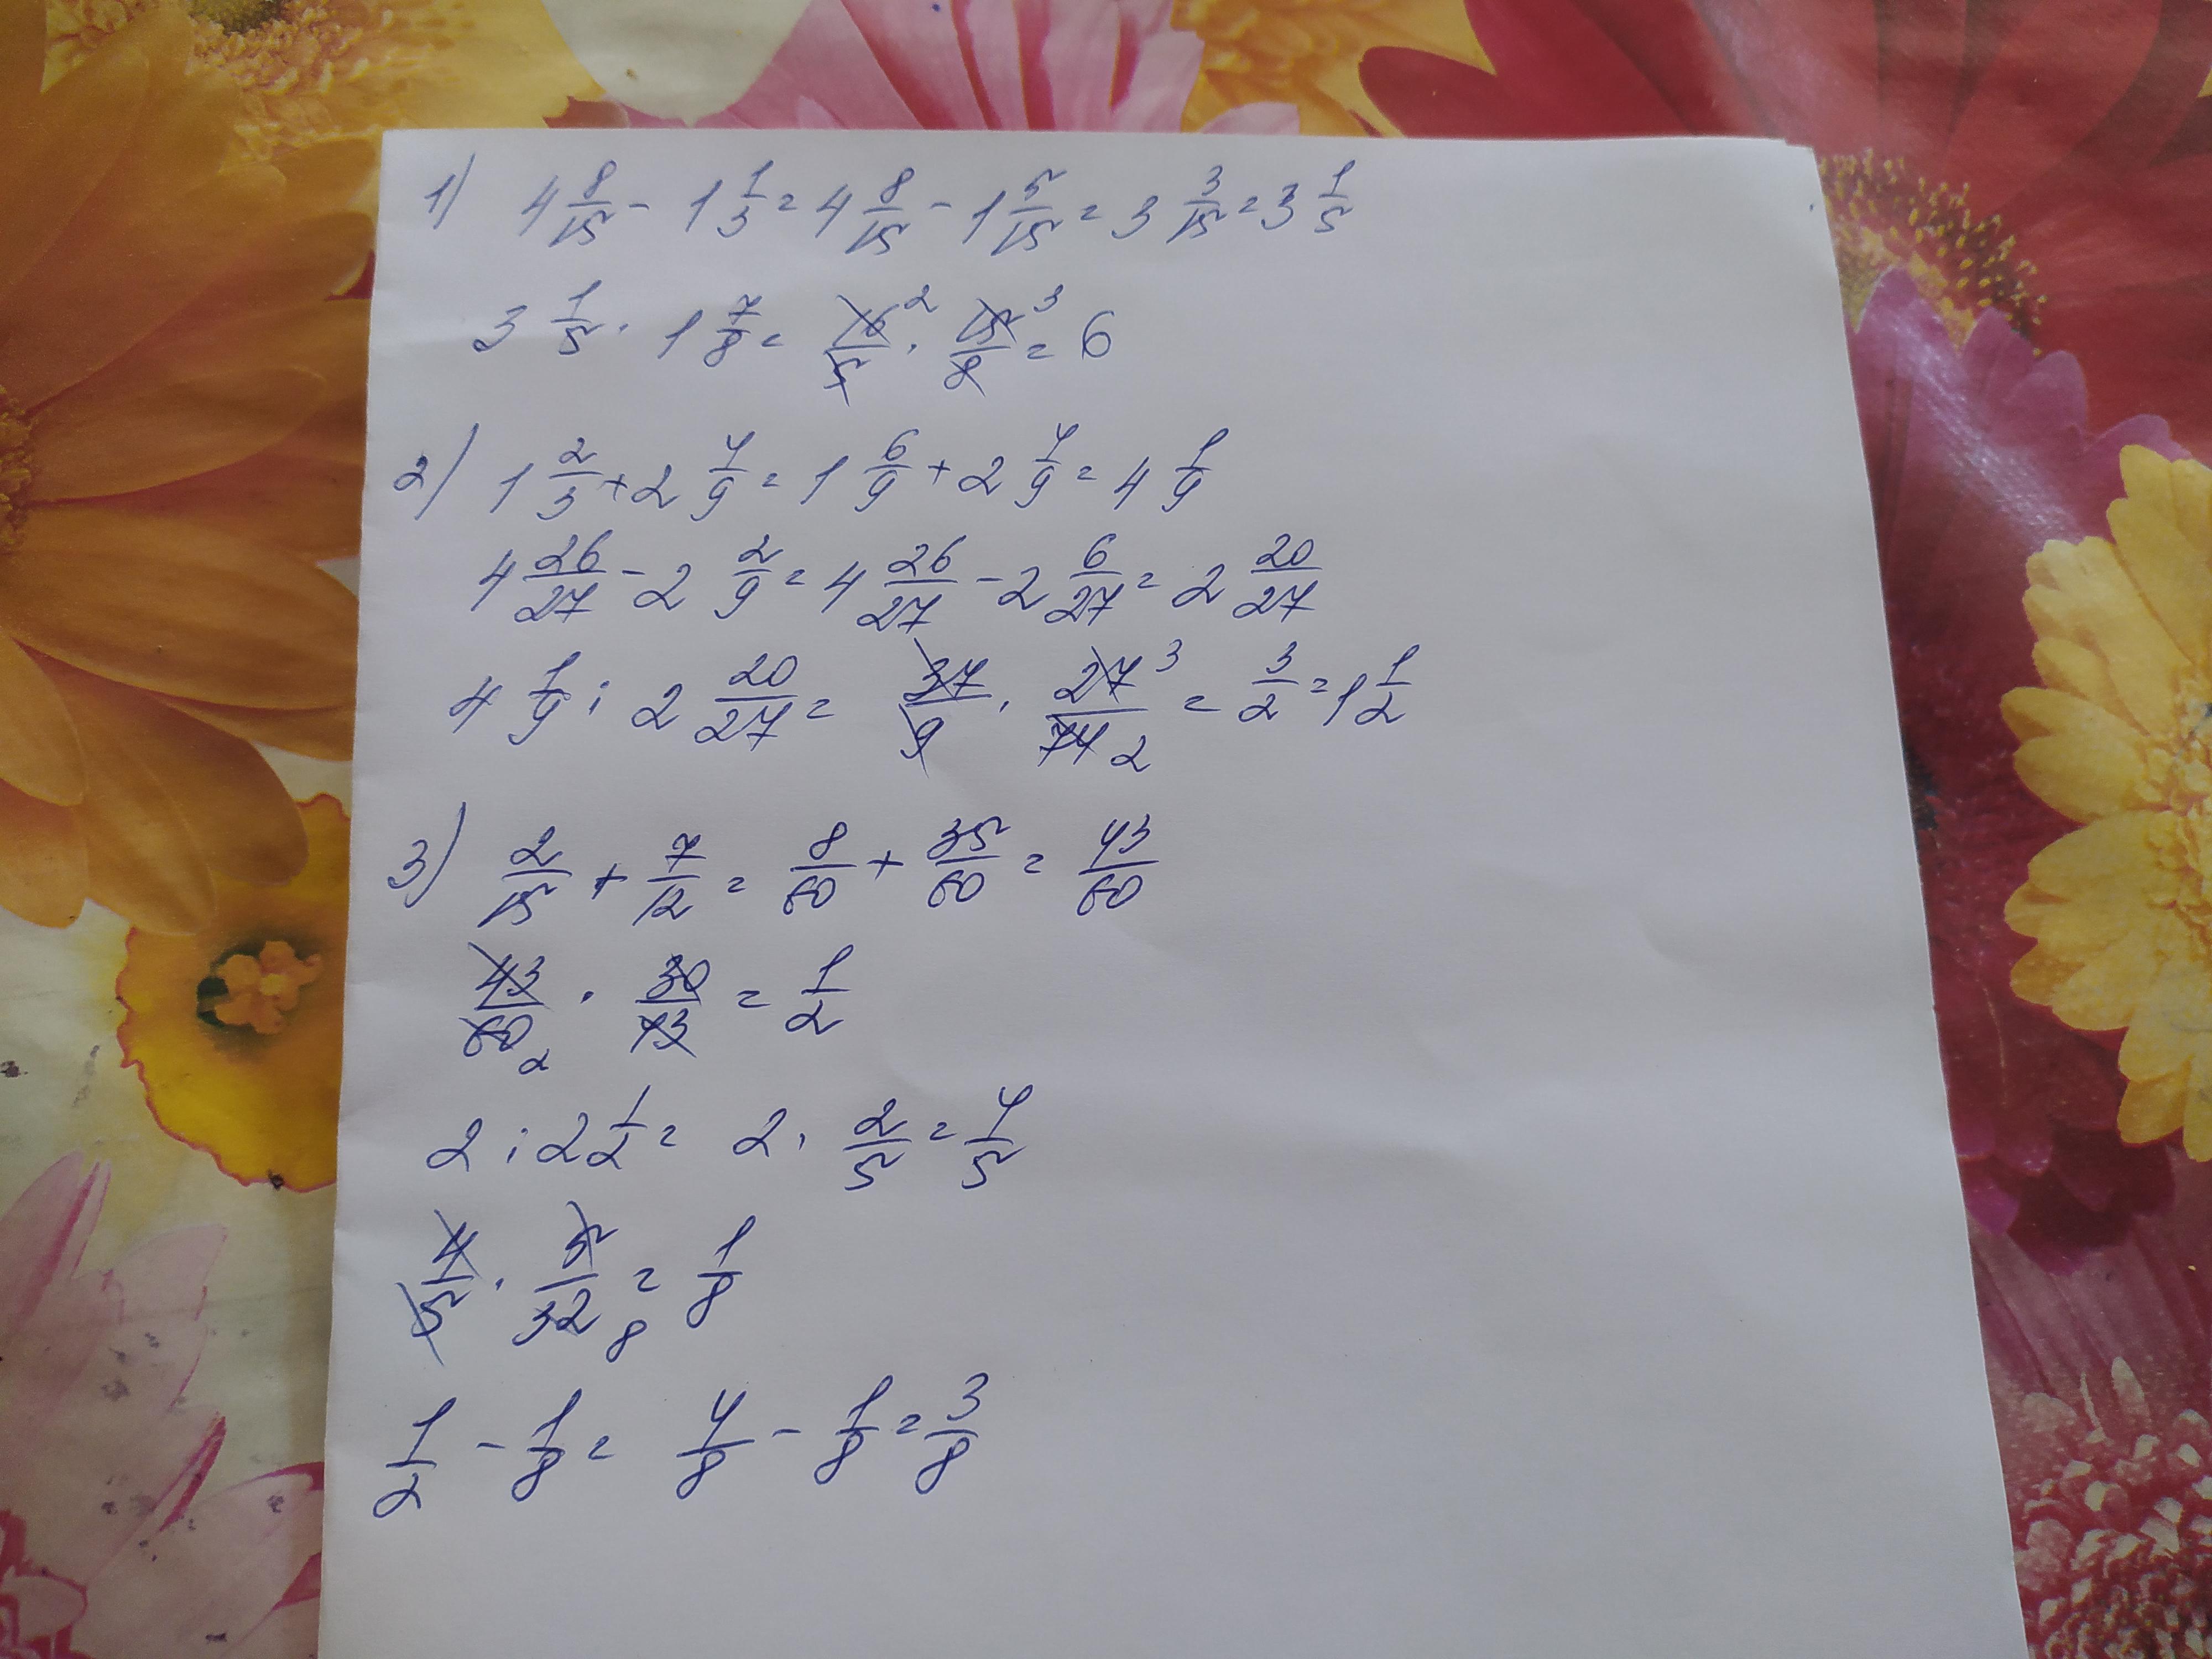 1) 4 8/15 - 1 1/3 = 4 8/15 - 1 5/15 = 3 3/15 = 3 1/5
3 1/5 · 1 7/8 = 16/5 2 · 15/8 3 = 6
2) 1 2/3 + 2 4/9 = 1 6/9 + 2 4/9 = 4 1/9
4 26/27 - 2 2/9 = 4 26/27 - 2 6/27 = 2 20/27
4 1/9 : 2 20/27 = 37/9 · 27 3/74 2 = 3/2 = 1 1/2
3) 2/15 + 7/12 = 8/60 + 35/60 = 43/60
43/60 2 · 30/43 = 1/2
2 : 2 1/2 = 2 · 2/5 = 4/5
4/5 · 5/32 8 = 1/8
1/2 - 1/8 = 4/8 - 1/8 = 3/8